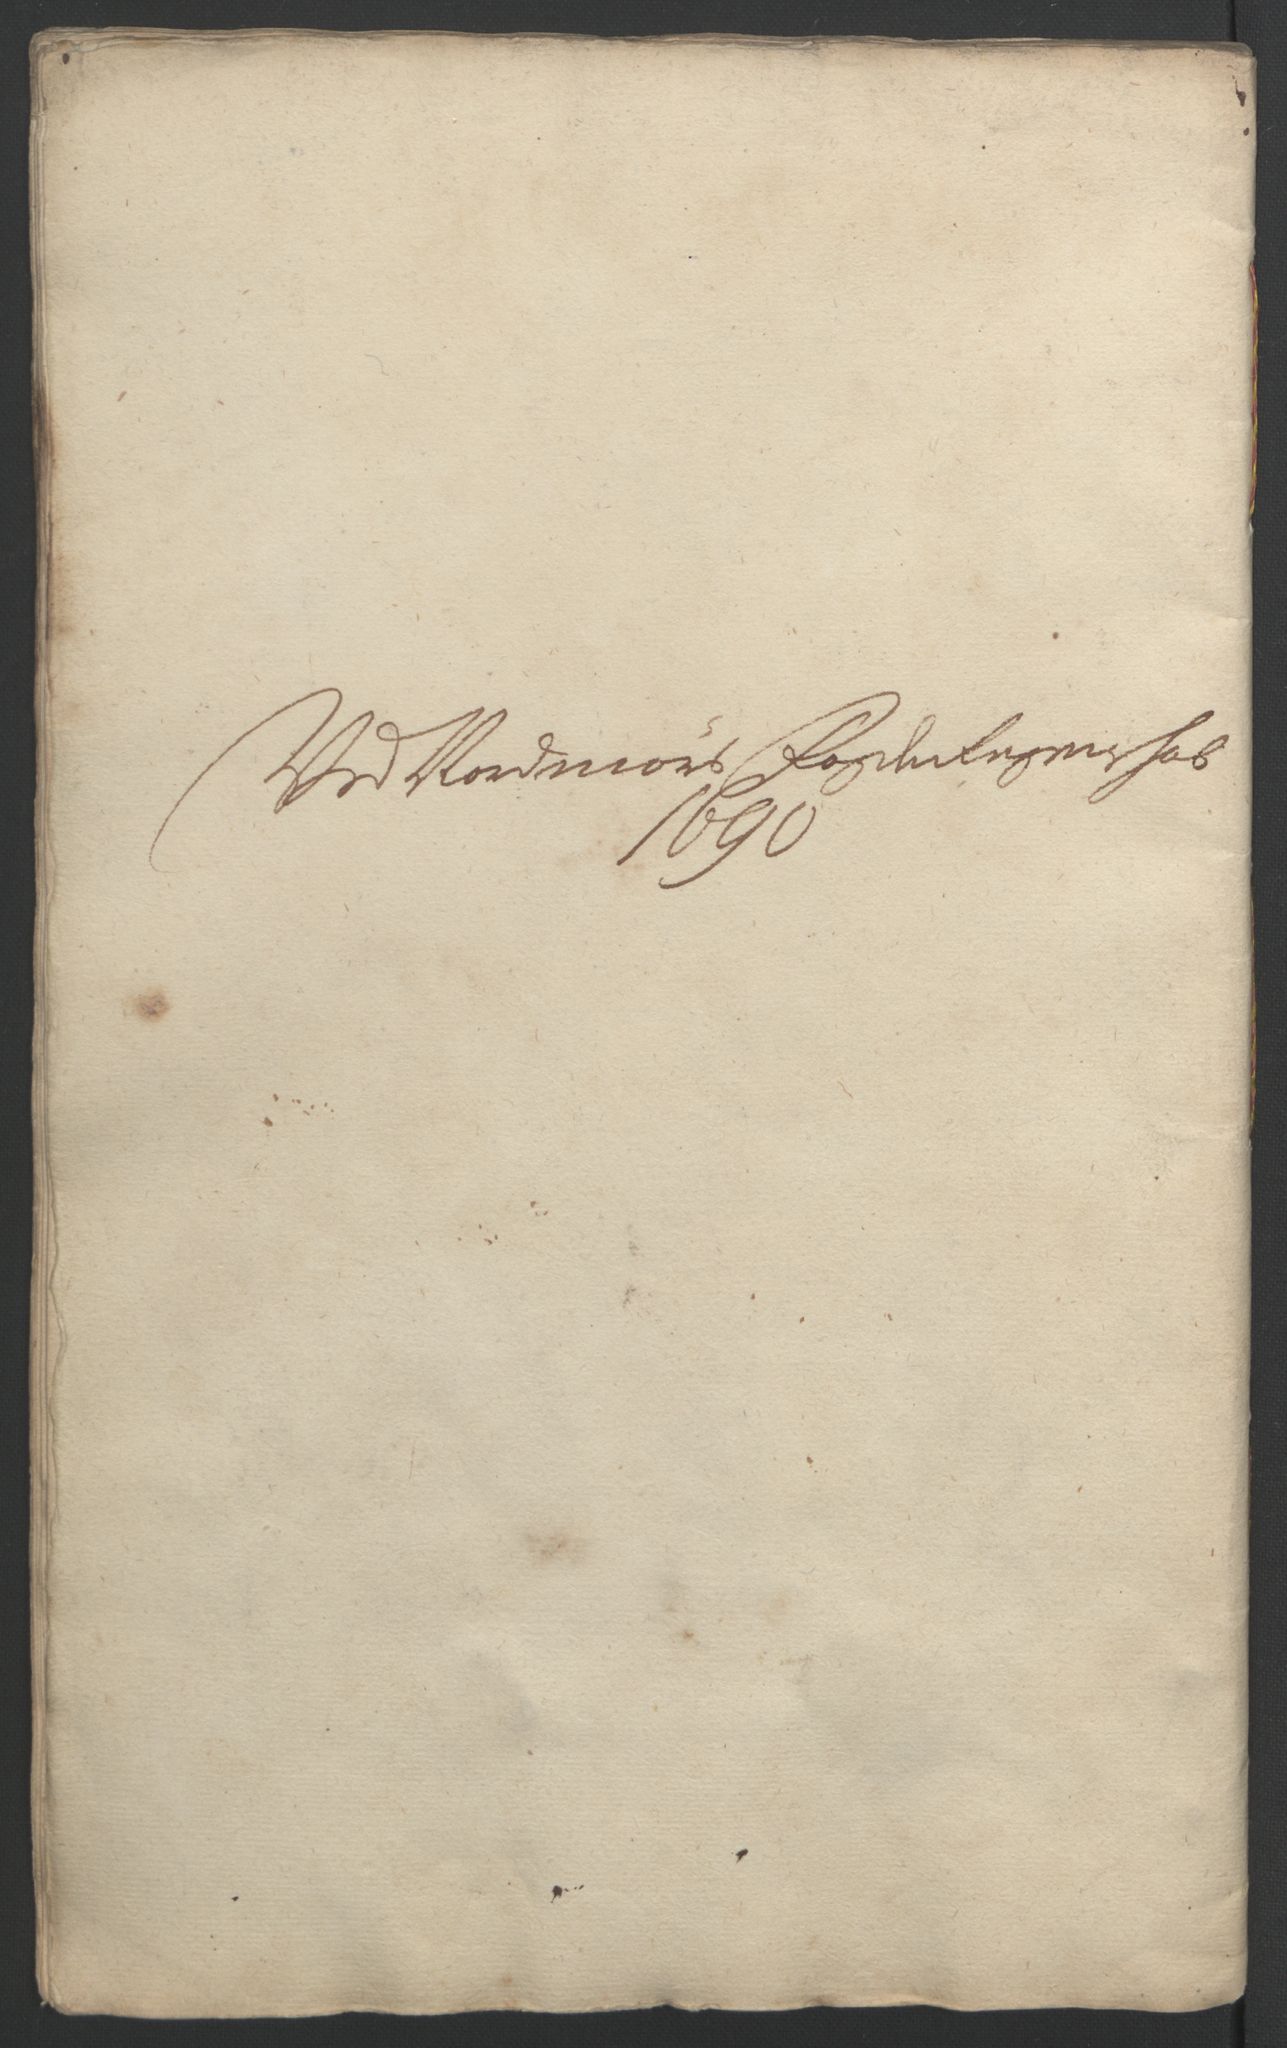 Ved Nordmörs Fogderegnschab
1690